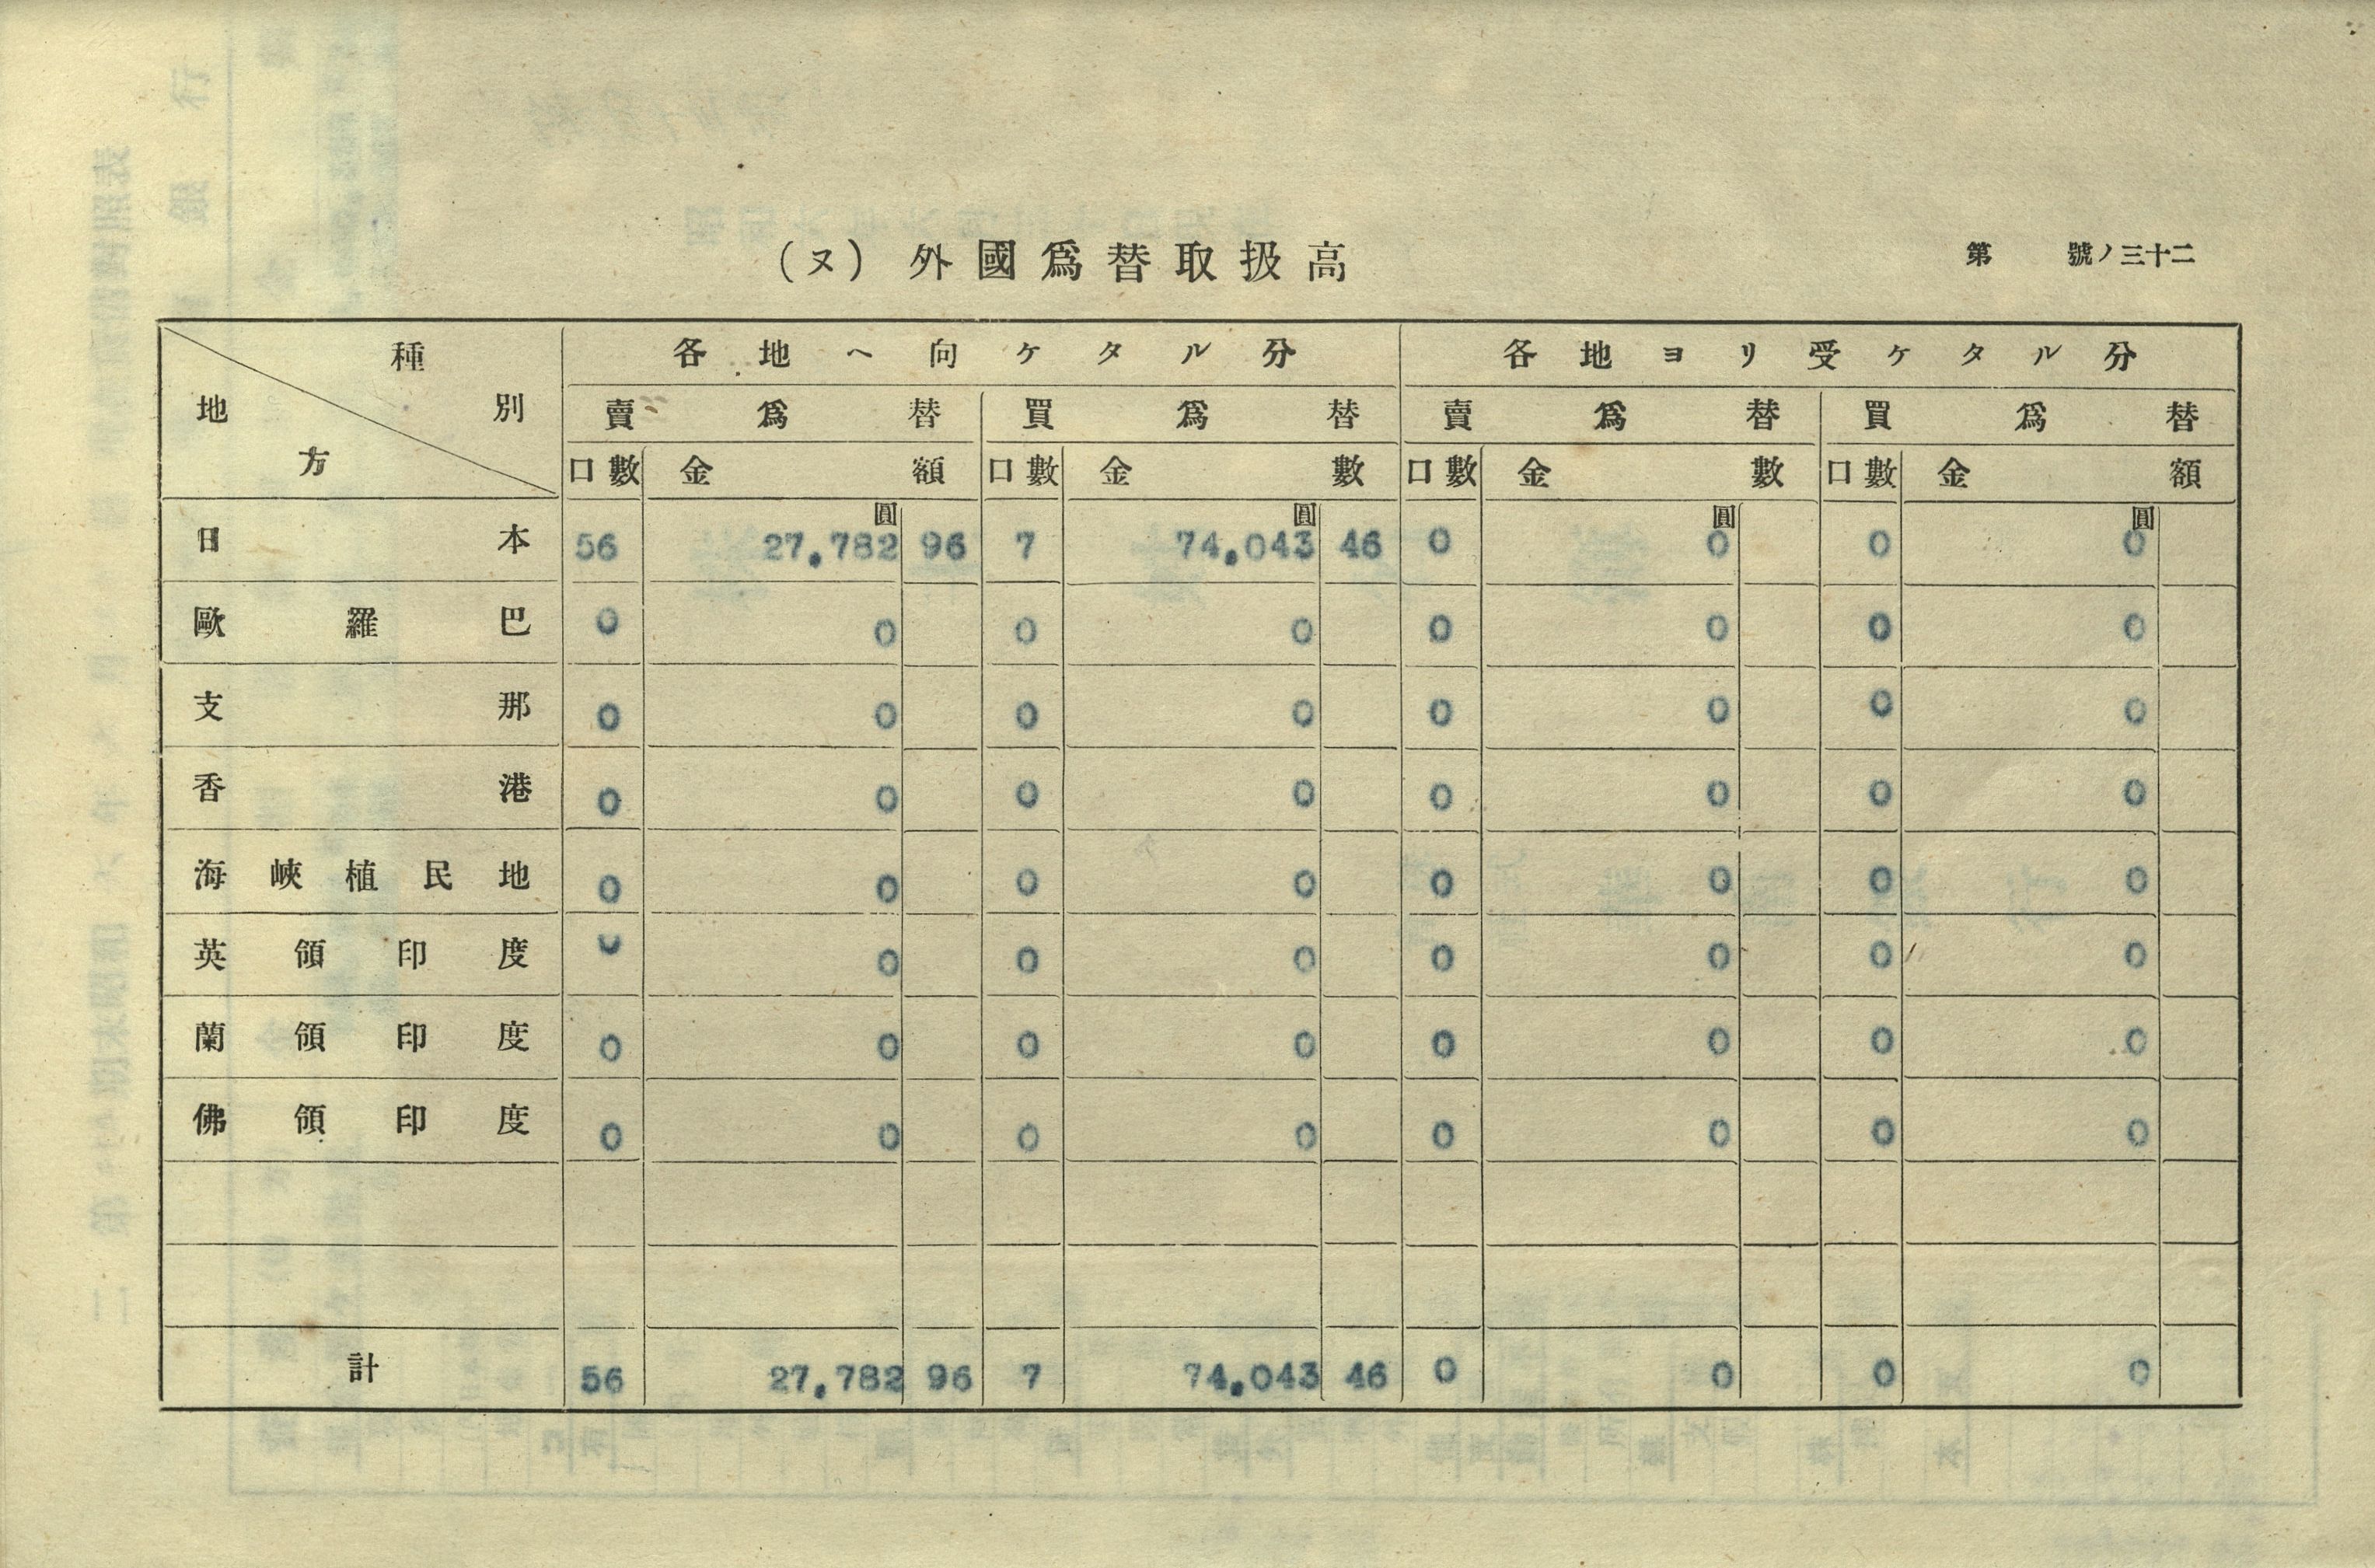 (ヌ) 外國爲替取扱高
第 號ノ三十二
種別 地方 各地ヘ向ケタル分 各地ヨリ受ケタル分
賣爲替 買爲替 賣爲替 買爲替
口數 金額 口數 金數 口數 金數 口數 金額
圓 圓 圓 圓
日本 56 27,782 96 7 74,043 46 0 0 0 0
歐羅巴 0 0 0 0 0 0 0 0
支那 0 0 0 0 0 0 0 0
香港 0 0 0 0 0 0 0 0
海峽植民地 0 0 0 0 0 0 0 0
英領印度 0 0 0 0 0 0 0 0
蘭領印度 0 0 0 0 0 0 0 0
佛領印度 0 0 0 0 0 0 0 0
計 56 27,782 96 7 74,043 46 0 0 0 0